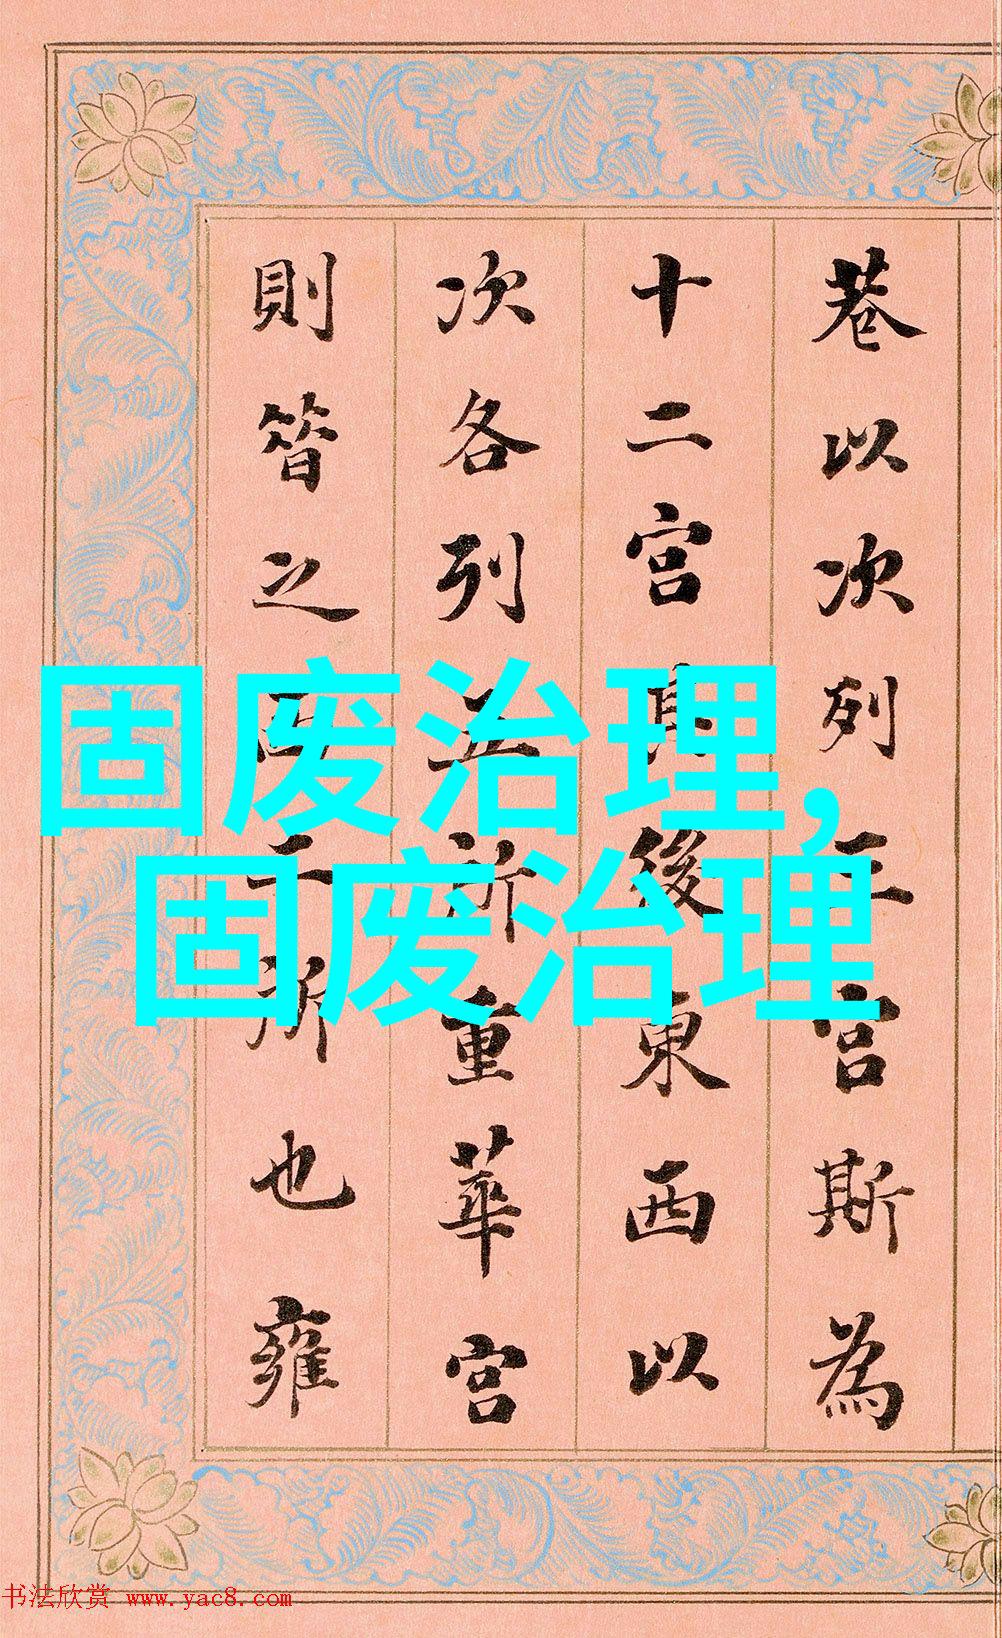 巷以次列三宮斯為
十二宮其後東西以
次各列五所重華宮
則昔之西二所也雍
固废治理，
固废治理
书法欣赏 www.yac8.com